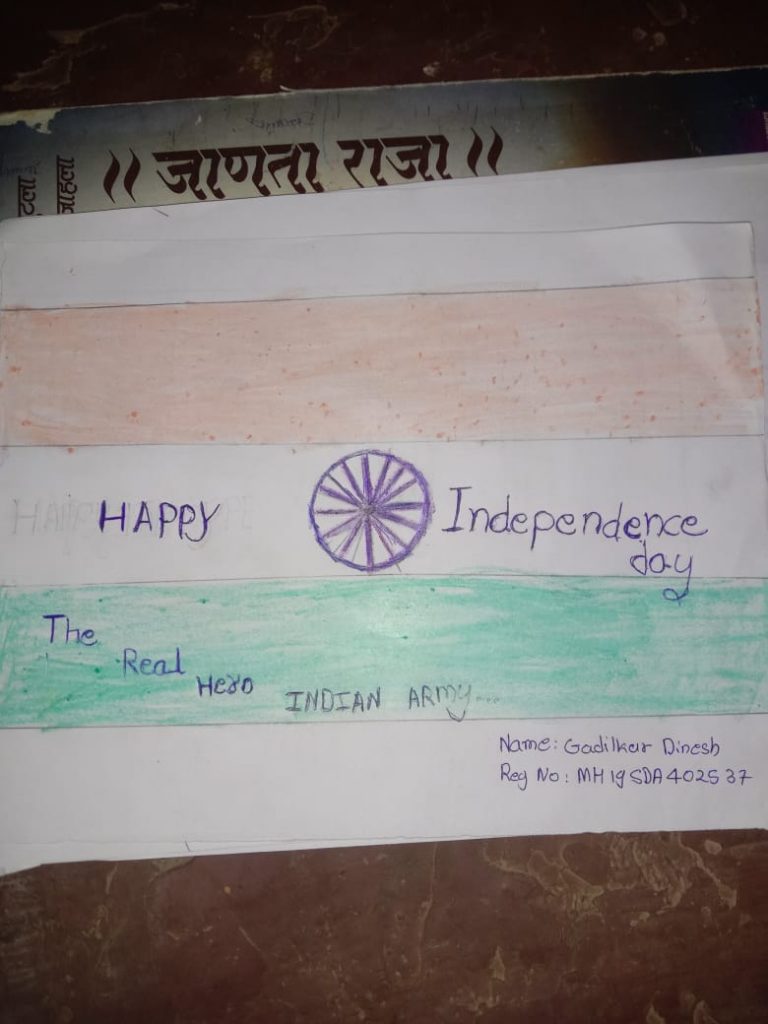 ॥ जाणता राजा ॥
HAPPY Independence
day
The
Real
Hero
INDIAN ARMY...
Name: Gadilkar Dinesh
Reg No: MH19SDA402537